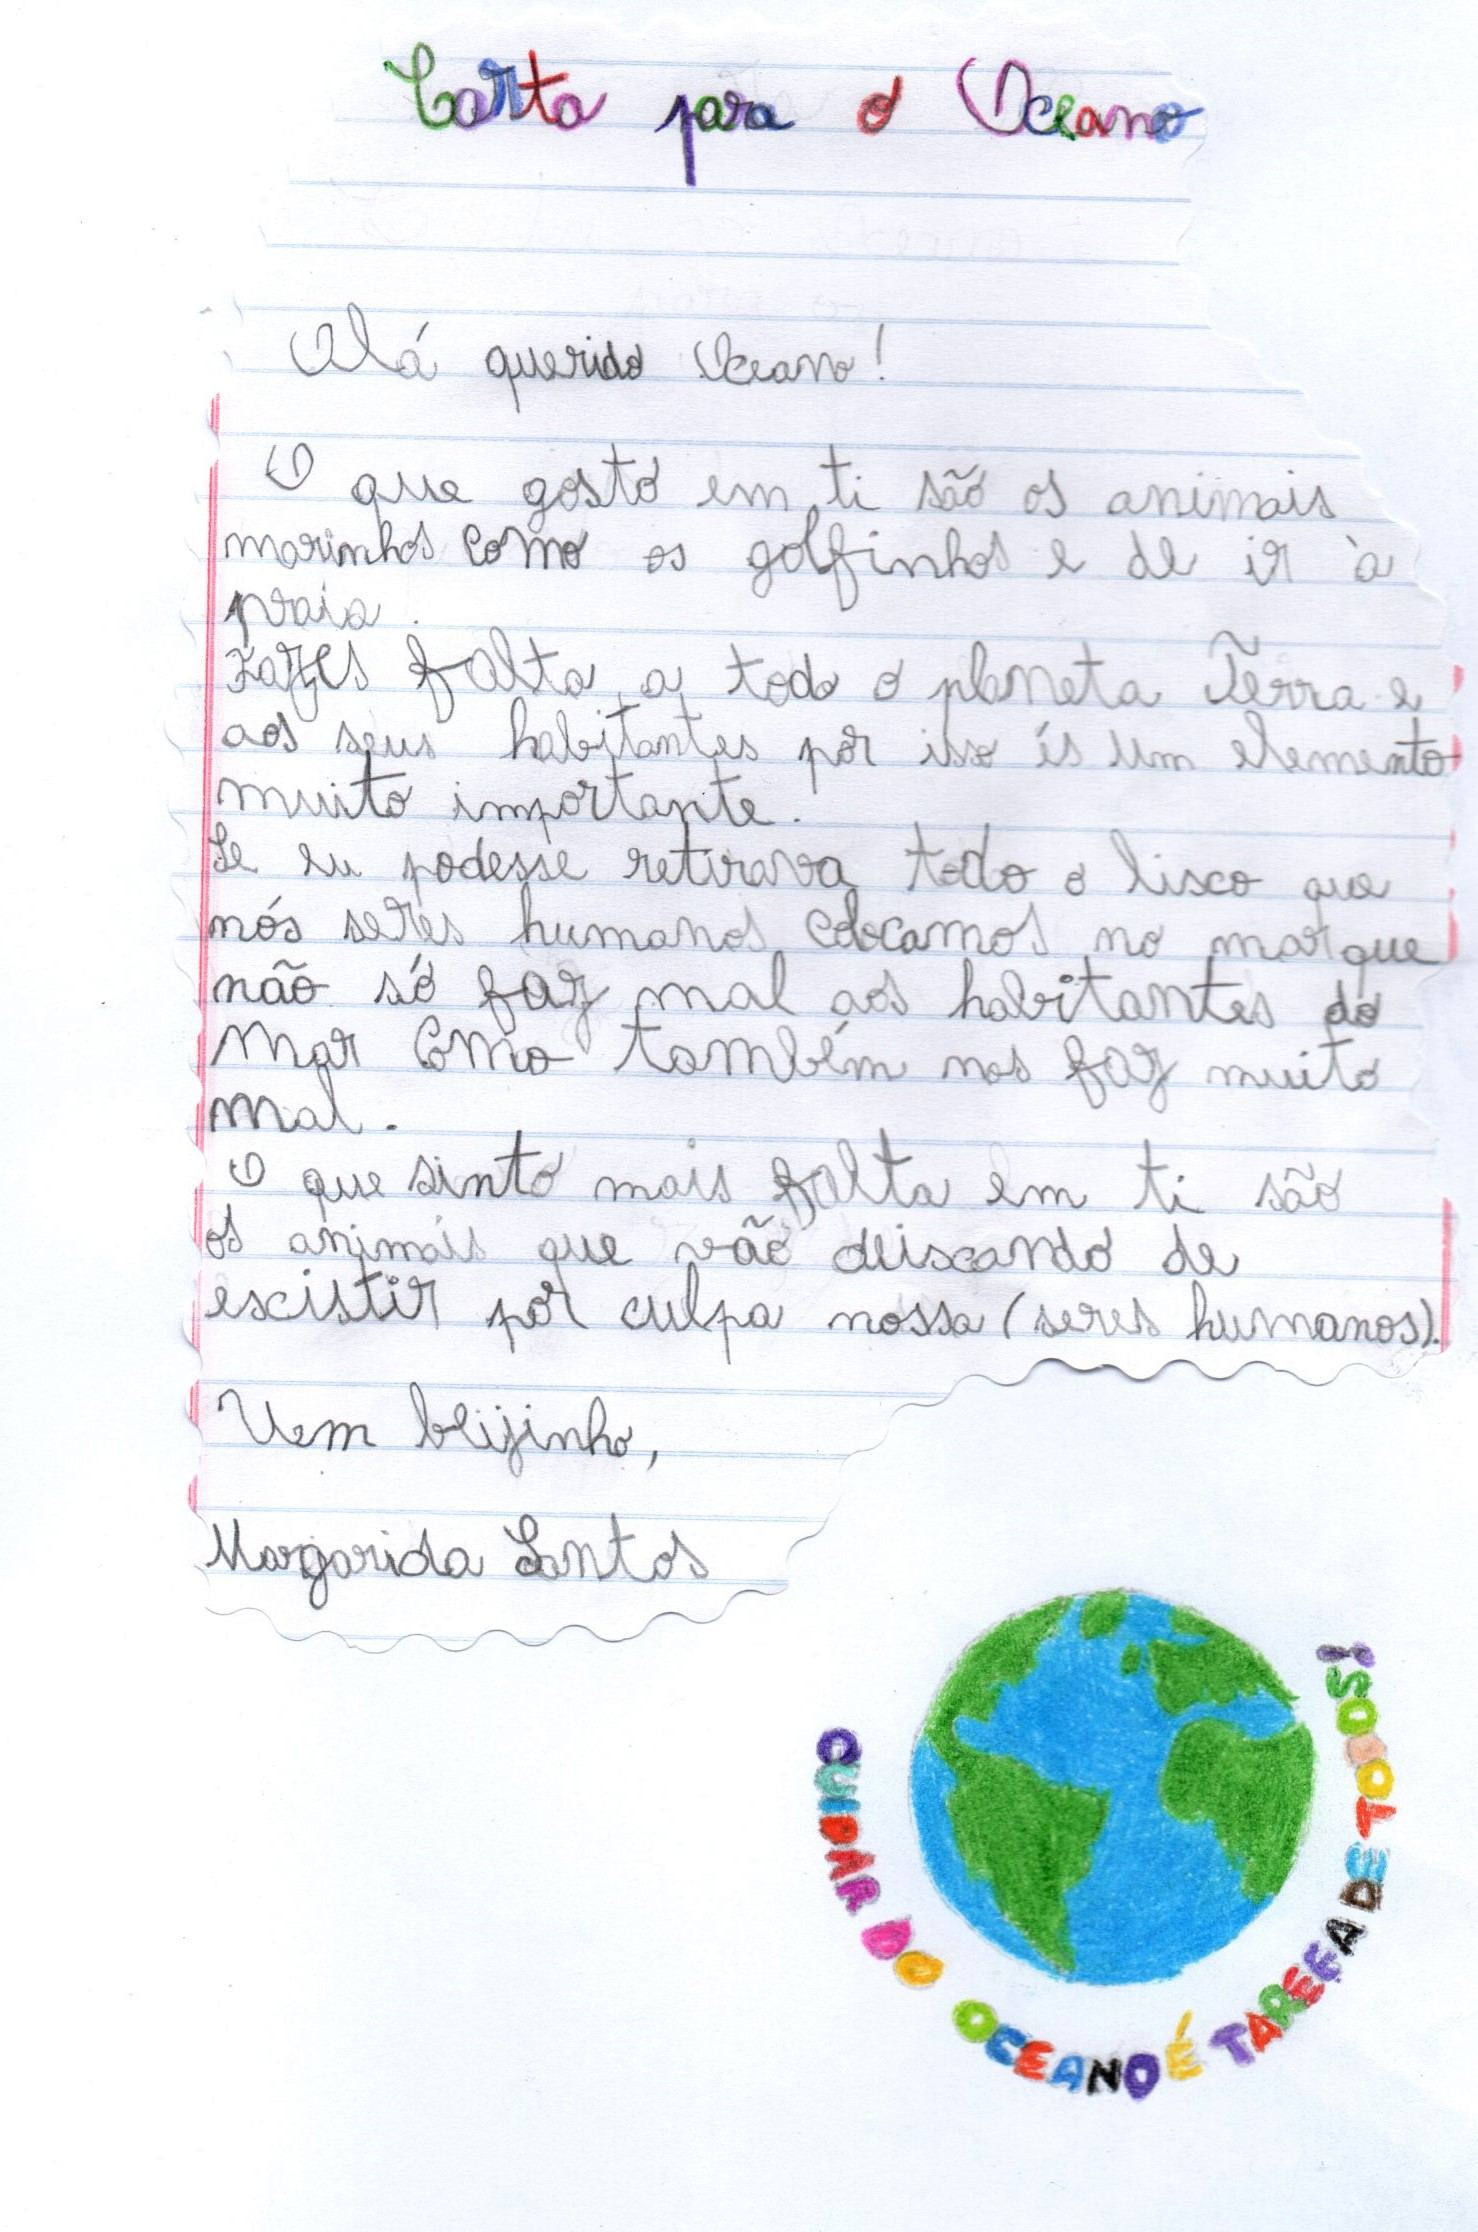 Carta para o Oceano
Olá querido Oceano!
O que gosto em ti são os animais
marinhos como os golfinhos e de ir à
praia.
Fazes falta a todo o planeta Terra e
aos seus habitantes por isso és um elemento
muito importante.
Se eu podesse retirava todo o lisco que
nós seres humanos colocamos no mar que
não só faz mal aos habitantes do
mar como também nos faz muito
mal.
O que sinto mais falta em ti são
os animais que vão deiscando de
escistir por culpa nossa (seres humanos).
Vem beijinho,
Margarida Santos
CUIDAR DO OCEANO É TAREFA DE TODOS!